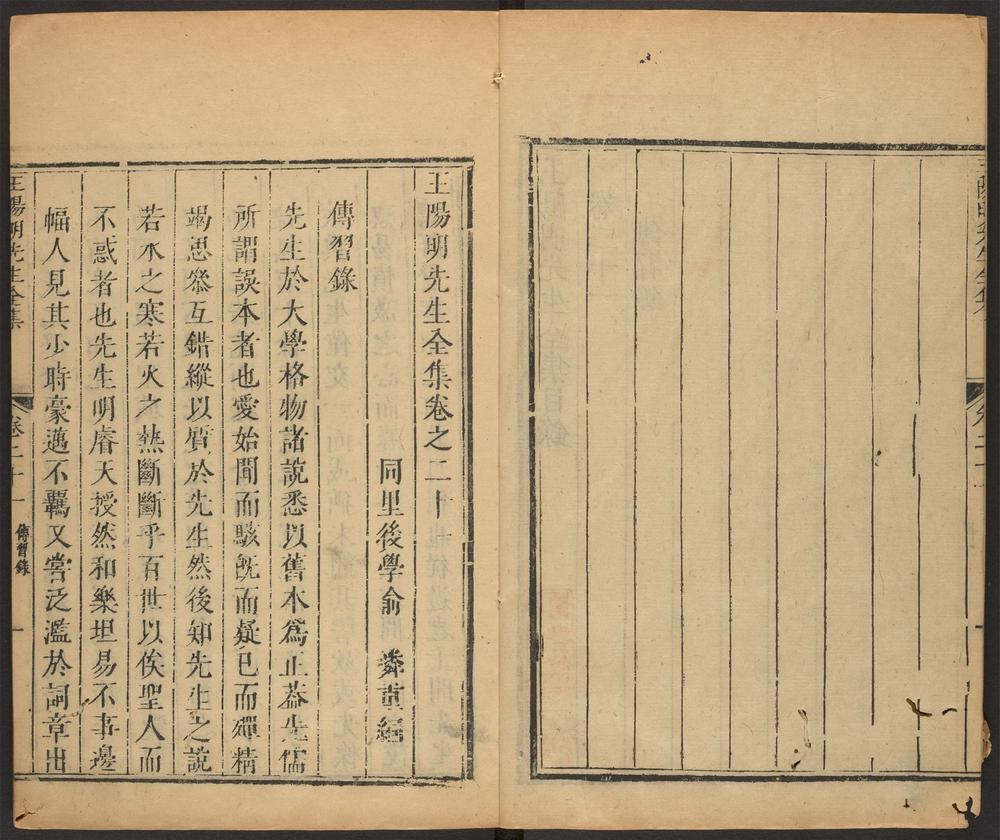 王陽明先生全集卷之二十
同里後學俞 嶙重編
傳習錄
先生於大學格物諸說悉以舊本爲正葢先儒
所謂誤本者也愛始聞而駭旣而疑已而殫精
竭思叅互錯縱以質於先生然後知先生之說
若水之寒若火之熱斷斷乎百世以俟聖人而
不惑者也先生明睿天授然和樂坦易不事邊
幅人見其少時豪邁不羈又嘗泛濫於詞章出
王陽明先生全集 卷二十 傳習錄 一